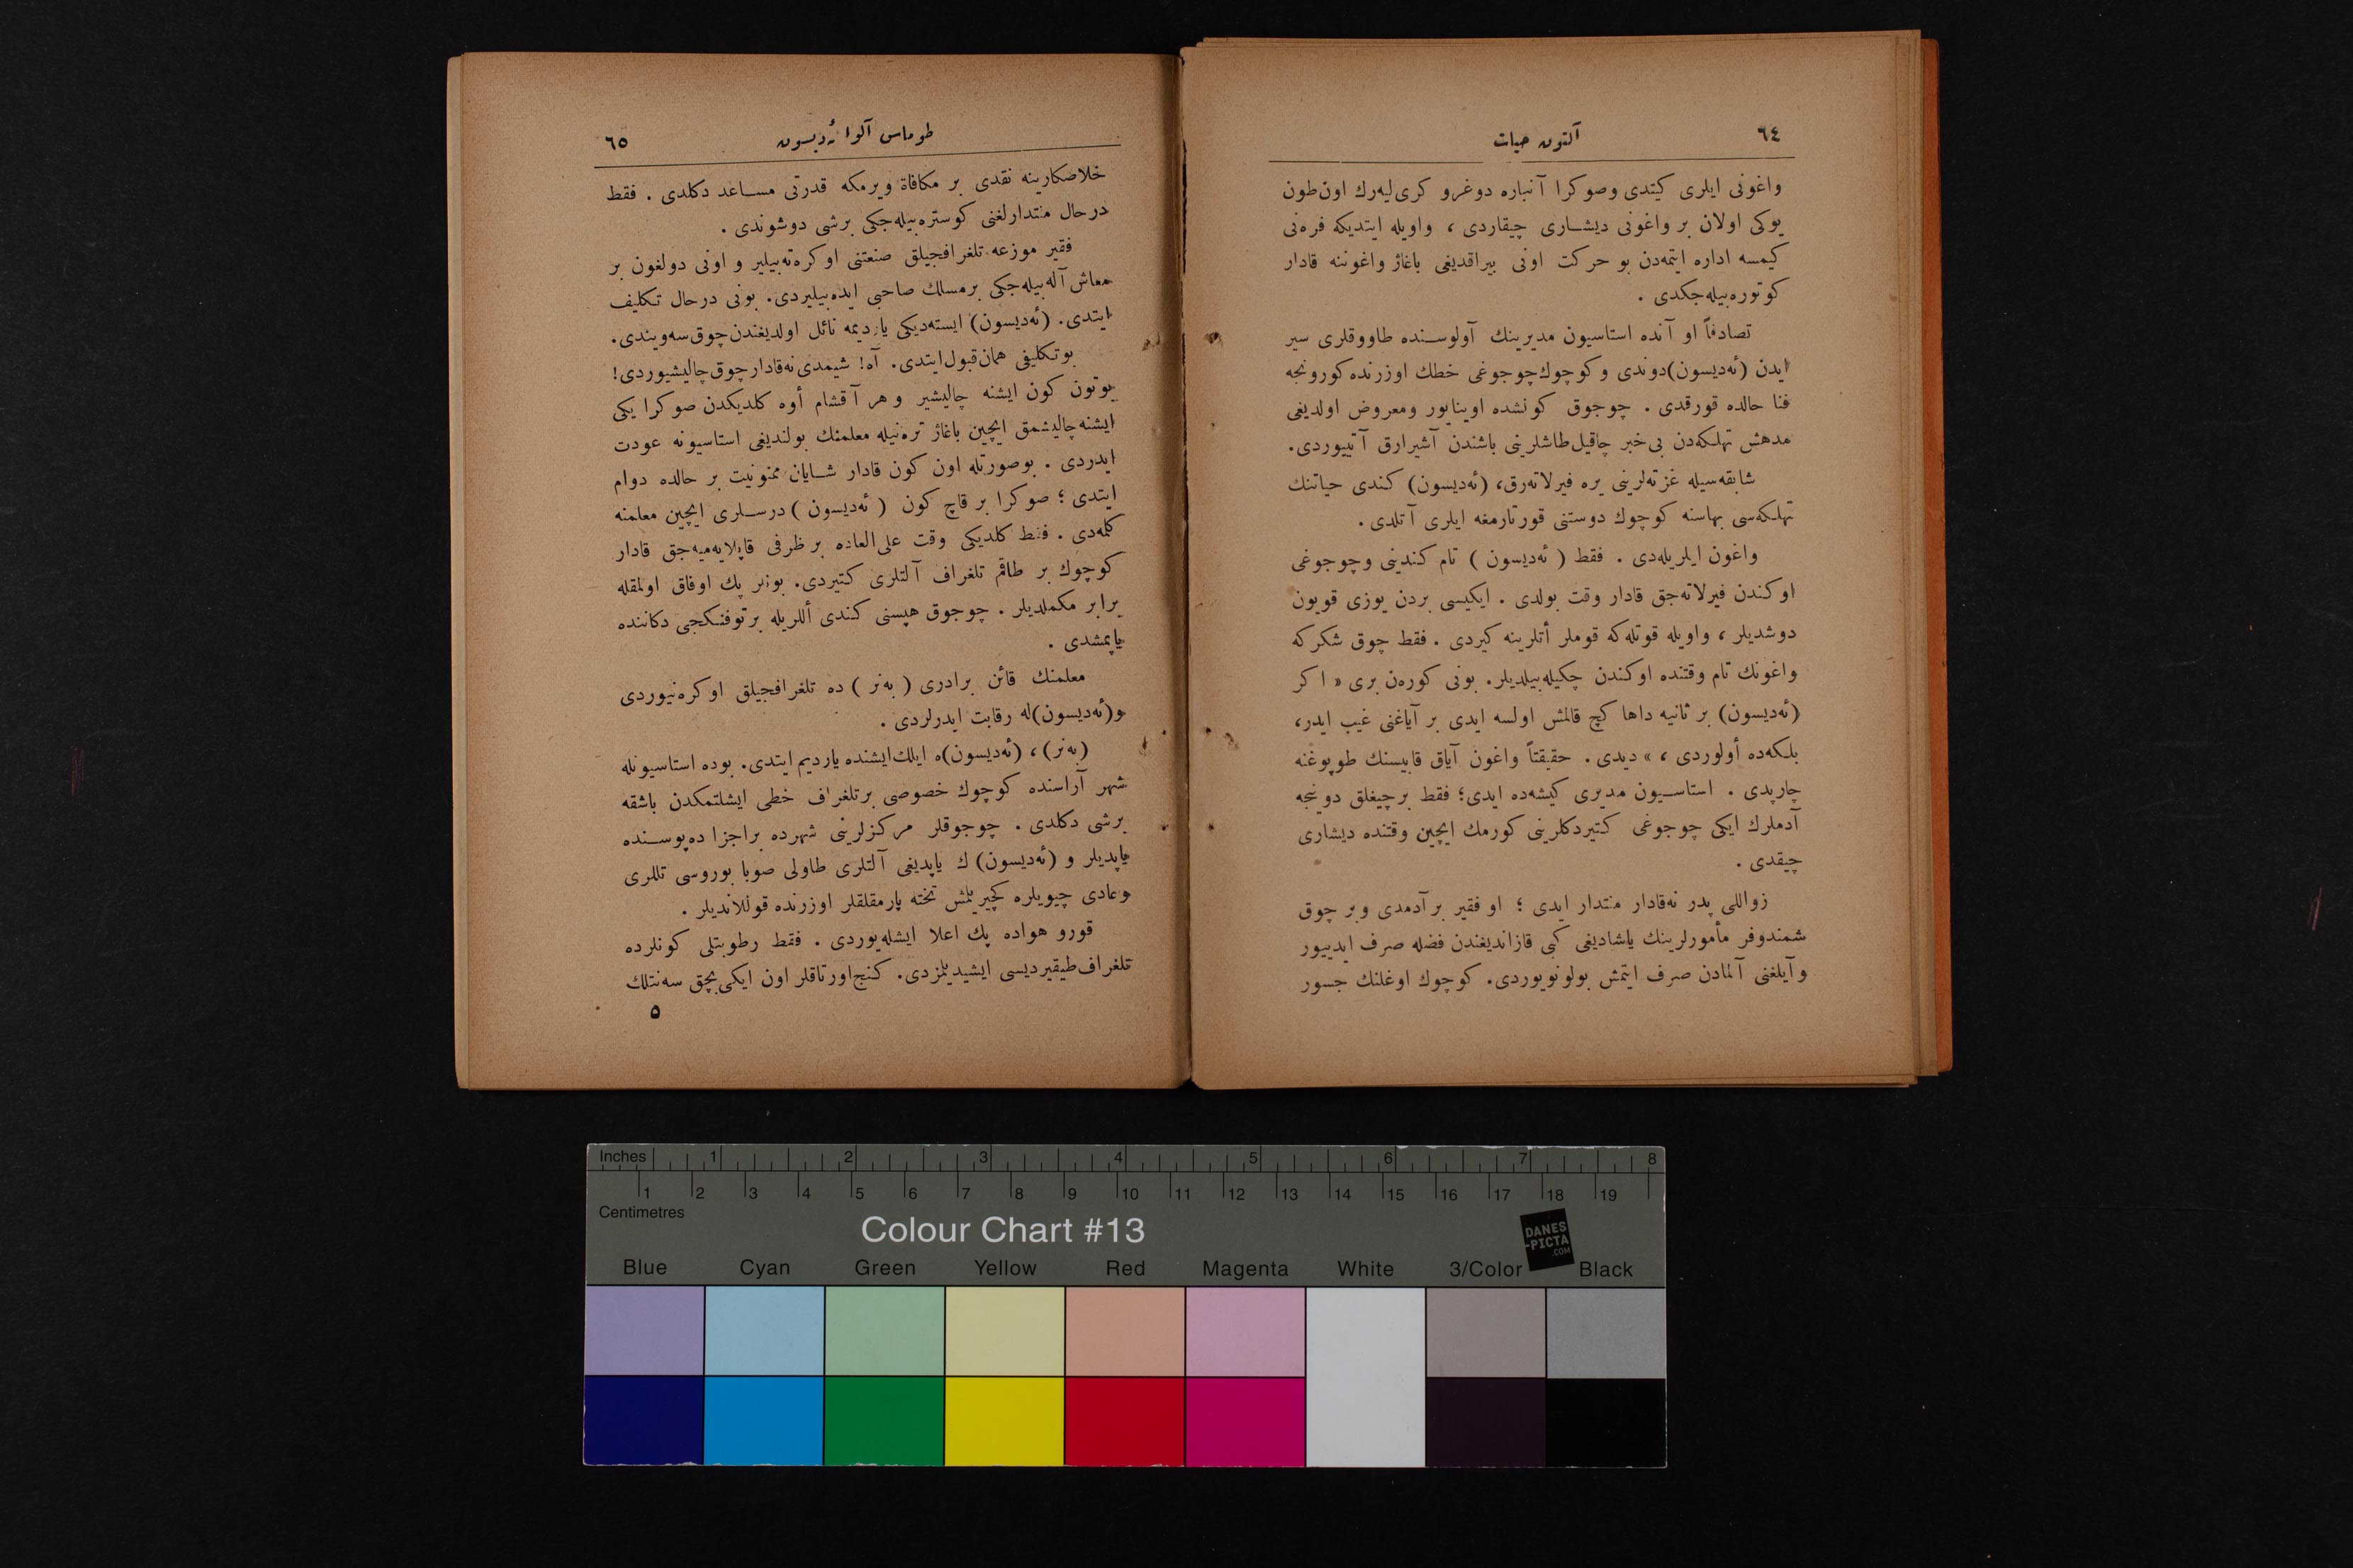 ٦٤
آلتون حیات
واغونی ایلری كیتدی وصوكرا آنباره دوغرو كری‌لیه‌رك اون‌طون
یوكی اولان بر واغونی دیشـاری چیقاردی ، واویله ایتدیكه فره‌نی
كیمسه اداره ایتمه‌دن بو حركت اونی بیراقدیغی باغاژ واغوننه قادار
كوتوره‌بیله‌جكدی .
تصادفاً او آنده استاسیون مدیرینك آولوسـنده طاووقلری سیر
ایدن (ئه‌دیسون) دوندی و كوچوك چوجوغی خطك اوزرنده كورونجه
فنا حالده قورقدی . چوجوق كونشده اوینایور ومعروض اولدیغی
مدهش تهلكه‌دن بی‌خبر چاقیل‌طاشلرینی باشندن آشیرارق آتییوردی.
شابقه‌سیله غزته‌لرینی یره فیرلاته‌رق، (ئه‌دیسون) كندی حیاتنك
تهلكه‌سی بهاسنه كوچوك دوستنی قورتارمغه ایلری آتلدی .
واغون ایلریله‌دی . فقط ( ئه‌دیسون ) تام كندینی وچوجوغی
اوكندن فیرلاته‌جق قادار وقت بولدی . ایكیسی بردن یوزی قویون
دوشدیلر ، واویله قوتله‌كه قوملر أتلرینه كیردی . فقط چوق شكر كه
واغونك تام وقتنده اوكندن چكیله‌بیلدیلر. بونی كوره‌ن بری « اكر
(ئه‌دیسون) بر ثانیه داها كچ قالمش اولسه ایدی بر آیاغنی غیب ایدر،
بلكه‌ده أولوردی ، » دیدی . حقیقتاً واغون آیاق قابیسنك طوپوغنه
چارپدی . استاسـیون مدیری كیشه‌ده ایدی؛ فقط بر چیغلق دوینجه
آدملرك ایكی چوجوغی كتیردكلرینی كورمك ایچین وقتنده دیشاری
چیقدی .
زواللی پدر نه‌قادار منتدار ایدی ؛ او فقیر بر آدمدی وبر چوق
شمندوفر مأمورلرینك یاشادیغی كبی قازاندیغندن فضله صرف ایدییور
وآیلغنی آلمادن صرف ایتمش بولونویوردی. كوچوك اوغلنك جسور
طوماس آلوا ئه‌دیسون
٦٥
خلاصكارینه نقدی بر مكافاة ویرمكه قدرتی مسـاعد دكلدی . فقط
درحال منتدارلغنی كوستره‌بیله‌جكی برشی دوشوندی .
فقیر موزعه تلغرافجیلق صنعتنی اوكره‌ته‌بیلیر و اونی دولغون بر
معاش آله‌بیله‌جكی برمسلك صاحبی ایده‌بیلیردی. بونی درحال تكلیف
ایتدی. (ئه‌دیسون) ایسته‌دیكی یاردیمه نائل اولدیغندن چوق سه‌ویندی.
بوتكلیفی همان قبول ایتدی. آه! شیمدی نه‌قادار چوق چالیشیوردی!
بوتون كون ایشنه چالیشیر و هر آقشام أوه كلدیكدن صوكرا یكی
ایشنه چالیشمق ایچین باغاژ تره‌نیله معلمنك بولندیغی استاسیونه عودت
ایدردی . بوصورتله اون كون قادار شـایان ممنونیت بر حالده دوام
ایتدی ؛ صوكرا بر قاچ كون ( ئه‌دیسون ) درسـلری ایچین معلمنه
كلمه‌دی . فقط كلدیكی وقت علی‌العاده بر ظرفی قاپلایه‌میه‌جق قادار
كوچوك بر طاقم تلغراف آلتلری كتیردی. بونلر پك اوفاق اولمقله
برابر مكملدیلر . چوجوق هپسنی كندی أللریله بر توفنكجی دكاننده
یاپمشدی .
معلمنك قائن برادری ( به‌نر ) ده تلغرافجیلق اوكره‌نیوردی
و(ئه‌دیسون)له رقابت ایدرلردی .
(به‌نر) ، (ئه‌دیسون)ه ایلك ایشنده یاردیم ایتدی. بوده استاسیونله
شهر آراسنده كوچوك خصوصی برتلغراف خطی ایشلتمكدن باشقه
برشی دكلدی . چوجوقلر مركزلرینی شهرده براجزا ده‌پوسـنده
یاپدیلر و (ئه‌دیسون) ك یاپدیغی آلتلری طاولی صوبا بوروسی تللری
وعادی چیویلره كچیریلمش تخته پارمقلقلر اوزرنده قوللاندیلر .
قورو هواده پك اعلا ایشله‌یوردی . فقط رطوبتلی كونلرده
تلغراف طیقیردیسی ایشیدیلمزدی. كنج اورتاقلر اون ایكی بچق سه‌نتلك
٥
Inches 1 2 3 4 5 6 7 8
1 2 3 4 5 6 7 8 9 10 11 12 13 14 15 16 17 18 19
Centimetres
Colour Chart #13
DANES
-PICTA
.COM
Blue Cyan Green Yellow Red Magenta White 3/Color Black